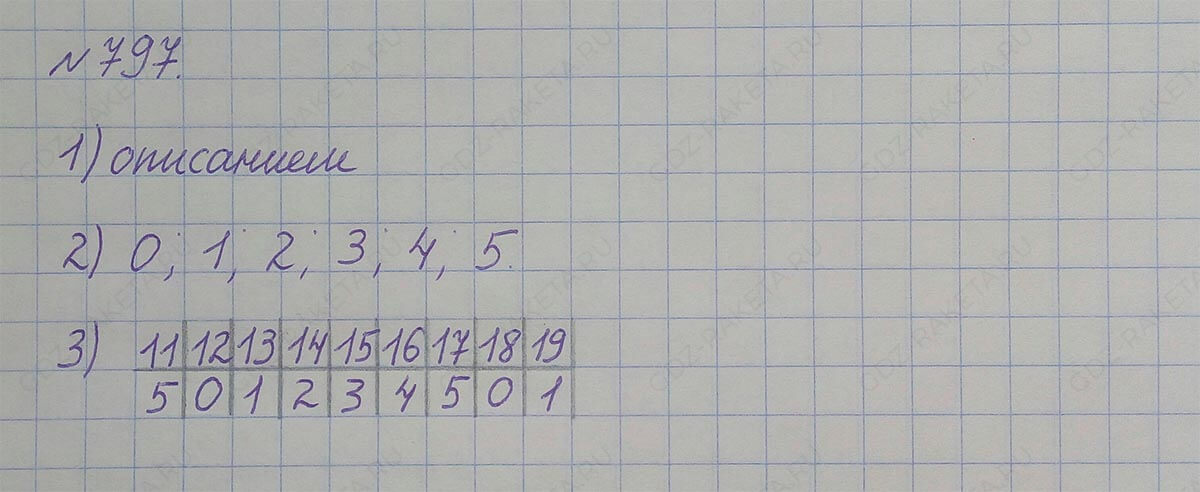 № 797.
1) описанием
2) 0; 1; 2; 3; 4; 5.
3) 11 12 13 14 15 16 17 18 19
5 0 1 2 3 4 5 0 1
GDZ-RAKETA.RU